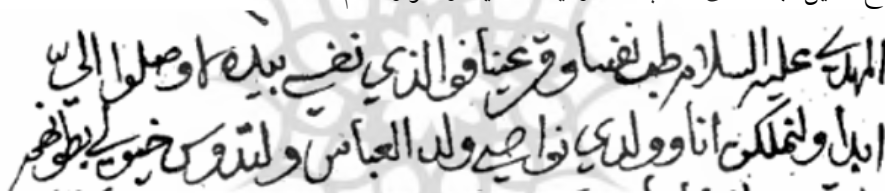 المهدي عليه السلام طب نفسا وقر عينا فوالذي نفسي بيده لا وصلوا اليّ
ابدا ولنملكن انا وولدي نواصي ولد العباس ولتدوس خيولي بطونهم